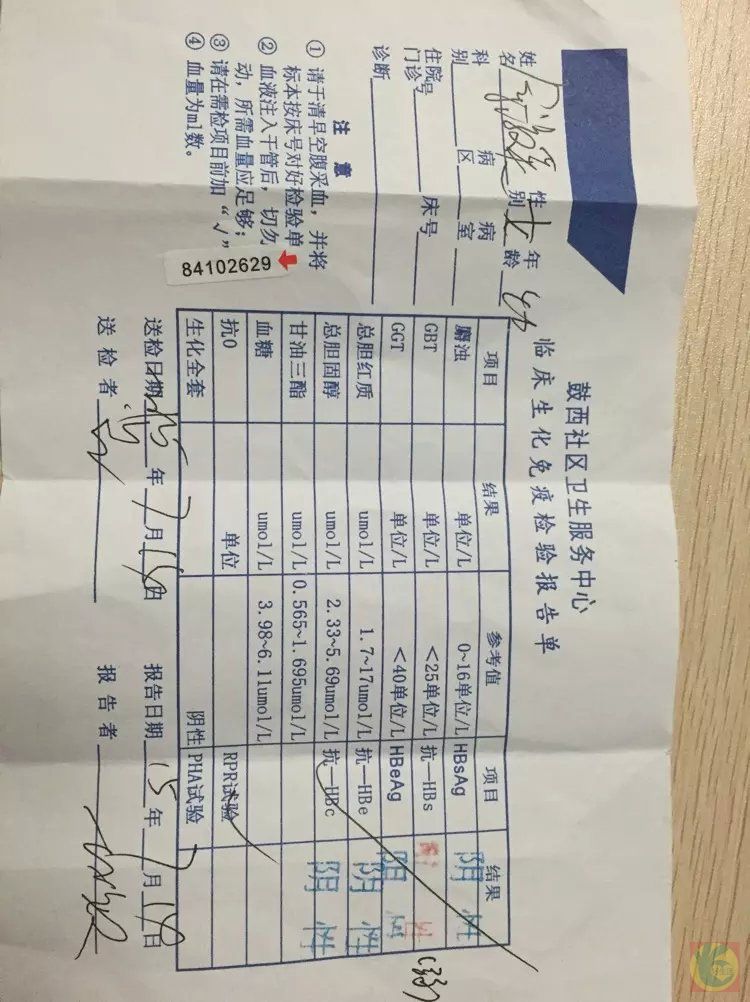 鼓西社区卫生服务中心
临床生化免疫检验报告单
姓名 性别 女 年龄
科别 病区 病室
住院号 门诊 床号
诊断
注意
① 请于清早空腹采血，并将
标本按床号对好检验单
② 血液注入干管后，切勿
动，所需血量应足够；
③ 请在需检项目前加“√”
④ 血量为ml数。
84102629
项目 结果 参考值 项目 结果
麝浊 单位/L 0~16单位/L HBsAg 阴性
GBT 单位/L <25单位/L 抗—HBs 阳性
GGT 单位/L <40单位/L HBeAg 阴性
总胆红质 umol/L 1.7~17umol/L 抗—HBe 阴性
总胆固醇 umol/L 2.33~5.69umol/L 抗—HBc 阴性
甘油三酯 umol/L 0.565~1.695umol/L
血糖 umol/L 3.98~6.11umol/L
抗0 单位 RPR试验
生化全套 阴性 PHA试验
送检日期 15年7月 日 报告日期 15年7月 日
送检者 报告者